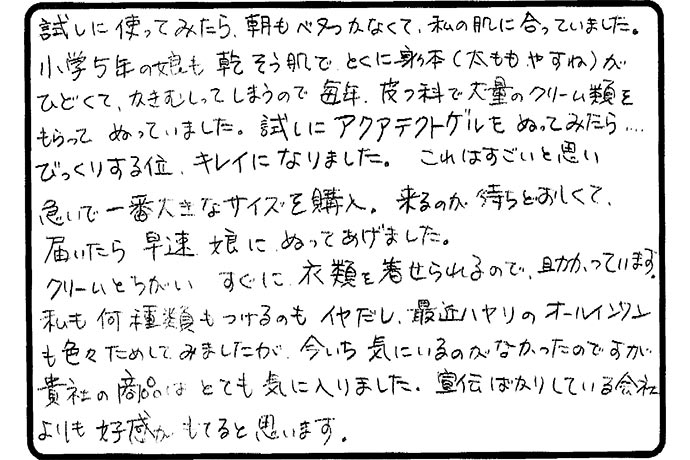 試しに使ってみたら、朝もベタつかなくて、私の肌に合っていました。
小学5年の娘も乾そう肌で、とくに身体（太ももやすね）が
ひどくて、かきむしってしまうので毎年、皮フ科で大量のクリーム類を
もらってぬっていました。試しにアクアテクトゲルをぬってみたら....
びっくりする位、キレイになりました。これはすごいと思い
急いで一番大きなサイズを購入。来るのが待ちどおしくて、
届いたら早速娘にぬってあげました。
クリームとちがいすぐに衣類を着せられるので、助かっています。
私も何種類もつけるのもイヤだし、最近ハヤリのオールインワン
も色々ためしてみましたが、今いち気にいるのがなかったのですが
貴社の商品はとても気に入りました。宣伝ばかりしている会社
よりも好感がもてると思います。